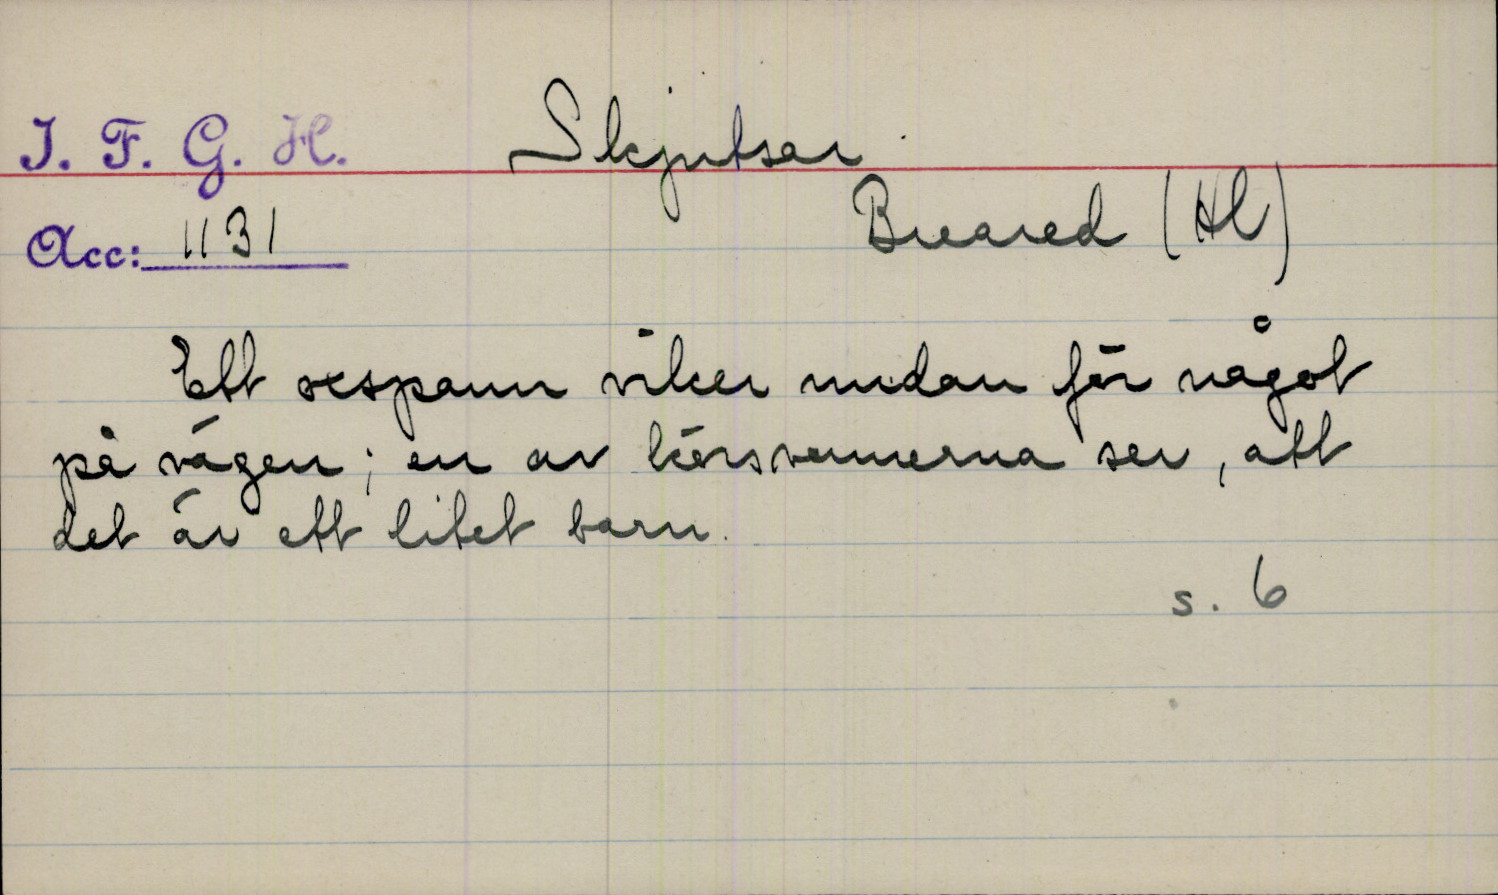 I. F. G. H.
Skjutsar
Acc: 1131
Breared (Hl)
Ett oxspann viker undan för något
på vägen; en av körsvennerna ser, att
det är ett litet barn.
s. 6